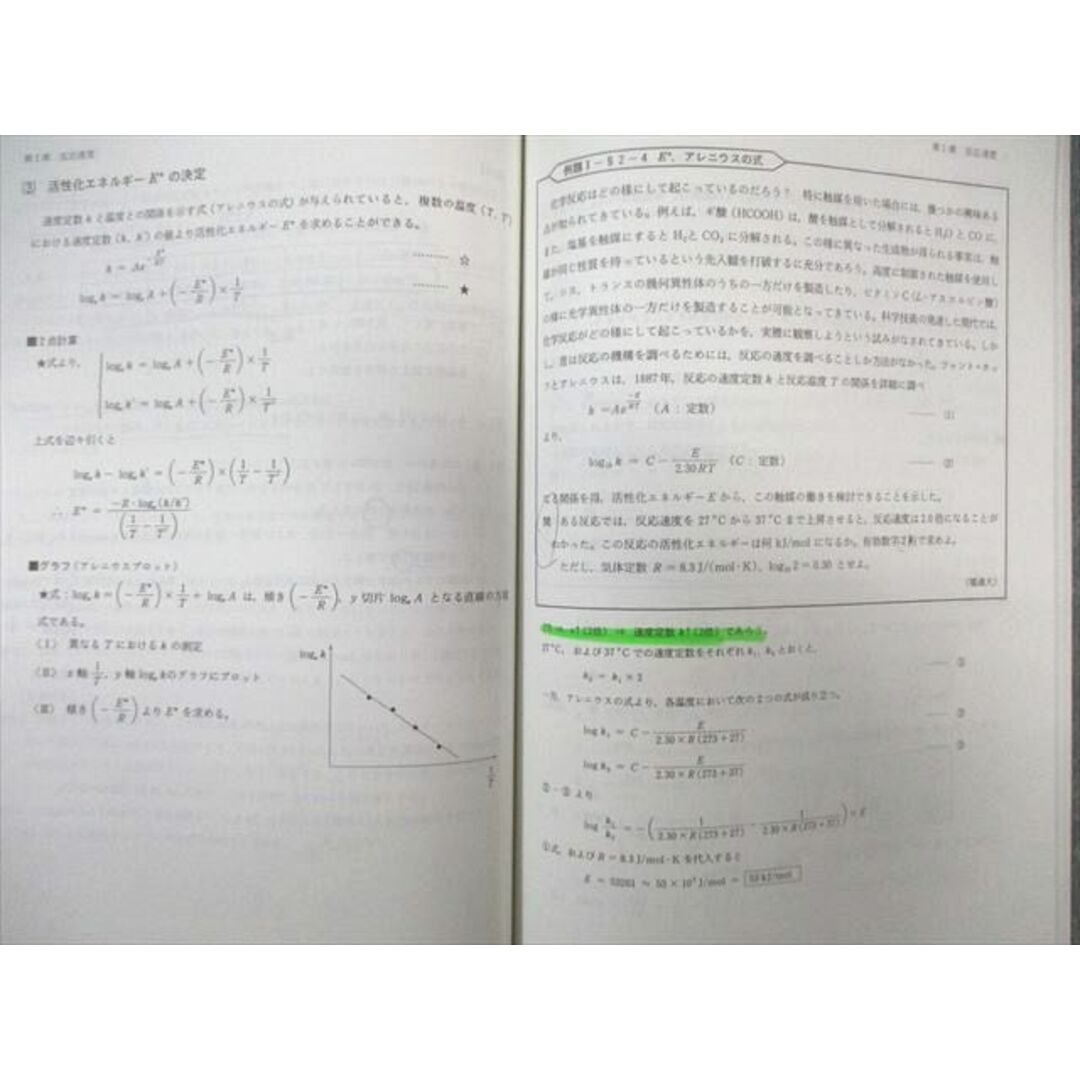 第1章 反応速度
③ 活性化エネルギーE*の決定
速度定数kと温度との関係を示す式（アレニウスの式）が与えられていると、複数の温度（T, T'）
における速度定数（k, k'）の値より活性化エネルギーE*を求めることができる。
k = Ae^(-E*/RT) ……… ☆
log_e k = log_e A + (-E*/R) × 1/T ……… ★
■2点計算
★式より、 log_e k = log_e A + (-E*/R) × 1/T
log_e k' = log_e A + (-E*/R) × 1/T'
上式を辺々引くと
log_e k - log_e k' = (-E*/R) × (1/T - 1/T')
∴ E* = -R・log_e(k/k') / (1/T - 1/T')
■グラフ（アレニウスプロット）
★式：log_e k = (-E*/R) × 1/T + log_e A は、傾き(-E*/R)、y切片 log_e A となる直線の方程
式である。
（Ⅰ） 異なるTにおけるkの測定
（Ⅱ） x軸 1/T、y軸 log_e kのグラフにプロット
（Ⅲ） 傾き(-E*/R)よりE*を求める。
log_e k
1/T
第1章 反応速度
例題1－§2－4 E*、アレニウスの式
化学反応はどの様にして起こっているのだろう？ 特に触媒を用いた場合には、幾つかの興味ある
点が知られてきている。例えば、ギ酸（HCOOH）は、酸を触媒として分解されるとH₂OとCOに、
また、塩基を触媒にするとH₂とCO₂に分解される。この様に異なった生成物が得られる事実は、触
媒が同じ性質を持っているという先入観を打破するに充分であろう。高度に制御された触媒を使用し
て、シス、トランスの幾何異性体のうちの一方だけを製造したり、ビタミンC（L-アスコルビン酸）
の様に光学異性体の一方だけを製造することが可能となってきている。科学技術の発達した現代では、
化学反応がどの様にして起こっているかを、実際に観察しようという試みがなされてきている。しか
し、昔は反応の機構を調べるためには、反応の速度を調べることしか方法がなかった。ファント・ホッ
フとアレニウスは、1887年、反応の速度定数kと反応温度Tの関係を詳細に調べ
k = Ae^(-E/RT) （A：定数） —— ①
より、
log₁₀ k = C - E/2.30RT （C：定数） —— ②
なる関係を得、活性化エネルギーEから、この触媒の働きを検討できることを示した。
問 ある反応では、反応速度を27℃から37℃まで上昇させると、反応速度は2.0倍になることが
わかった。この反応の活性化エネルギーは何kJ/molになるか。有効数字2桁で求めよ。
ただし、気体定数 R = 8.3 J/(mol・K)、log₁₀ 2 = 0.30 とせよ。
v↑(2倍) ⇒ 速度定数k↑(2倍) であろう。
27℃、および37℃での速度定数をそれぞれk₁、k₂とおくと、
k₂ = k₁ × 2
一方、アレニウスの式より、各温度において次の2つの式が成り立つ。
log k₁ = C - E / 2.30×R(273+27)
log k₂ = C - E / 2.30×R(273+37)
より
log k₁/k₂ = -(1 / 2.30×R(273+27) - 1 / 2.30×R(273+37)) × E
①式、およびR = 8.3 J/mol・Kを代入すると
J/mol = 53 kJ/mol